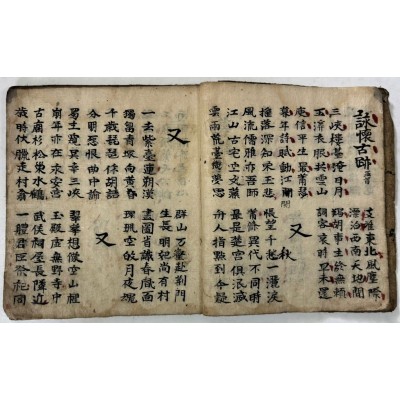 詠懷古跡 五首
支離東北風塵際
漂泊西南天地間
三峽樓臺淹日月
衣服與雲山
羯胡事主終無賴
詞客哀時且未還
庾信平生最蕭瑟
暮年詩賦動江關
又
搖落深知宋玉悲
風流儒雅亦吾師
悵望千秋一灑淚
蕭條異代不同時
江山古宅空文藻
雲雨荒臺豈夢思
最是楚宮俱泯滅
舟人指點到今疑
又
群山萬壑赴荊門
生長明妃尚有村
一去紫臺連朔漠
獨留青塚向黃昏
畫圖省識春風面
環珮空歸月夜魂
千載琵琶作胡語
分明怨恨曲中論
又
蜀主窺吳幸三峽
崩年亦在永安宮
翠華想像空山裡
玉殿虛無野寺中
古廟杉松巢水鶴
歲時伏臘走村翁
武侯祠屋長鄰近
一體君臣祭祀同